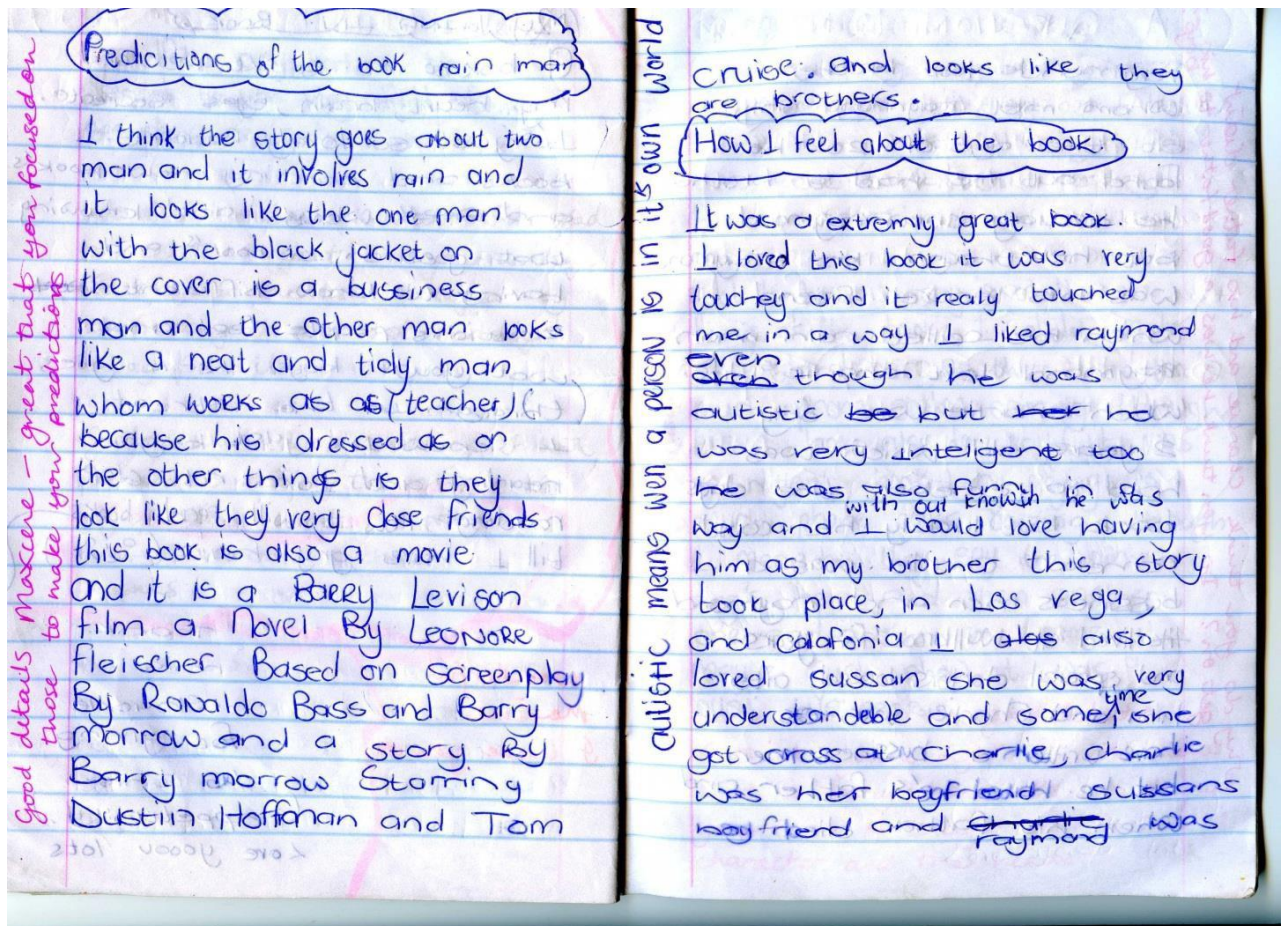 Predicitions of the book rain man
I think the story goes about two
man and it involves rain and
it looks like the one man
with the black jacket on
the cover is a bussiness
man and the other man looks
like a neat and tidy man
whom works as as (teacher)
because his dressed as on
the other things is they
look like they very close friends
this book is also a movie
and it is a Barry Levison
film a Novel By LEONORE
Fleischer Based on screenplay
By Ronaldo Bass and Barry
morrow and a story By
Barry morrow Starring
Dustin Hoffman and Tom
Good details Maxcene – great that you focused on
those to make your predictions
cruise. And looks like they
are brothers.
How I feel about the book.
It was a extremly great book.
I loved this book it was very
touchey and it realy touched
me in a way I liked raymond
even
even though he was
autistic be but he
was very Inteligent too
he was also funny in a
with out knowin he was
way and I would love having
him as my brother this story
took place, in Las vega,
and calafonia I also also
loved sussan she was very
understandeble and some time she
got cross at charlie, charlie
was her boyfriend sussans
boyfriend and charlie was
raymond
autistic means wen a person is in it's own world